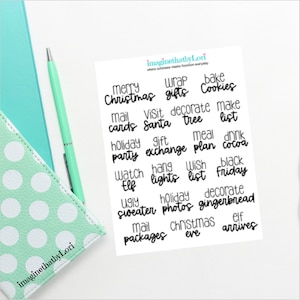 imaginethatbyLori
where whimsical meets functional everyday
merry Christmas
wrap gifts
bake Cookies
mail cards
visit Santa
decorate tree
make list
holiday party
gift exchange
meal plan
drink cocoa
watch elf
hang lights
wish list
black friday
ugly sweater
holiday photos
decorate gingerbread
mail packages
christmas eve
elf arrives
imaginethatbyLori